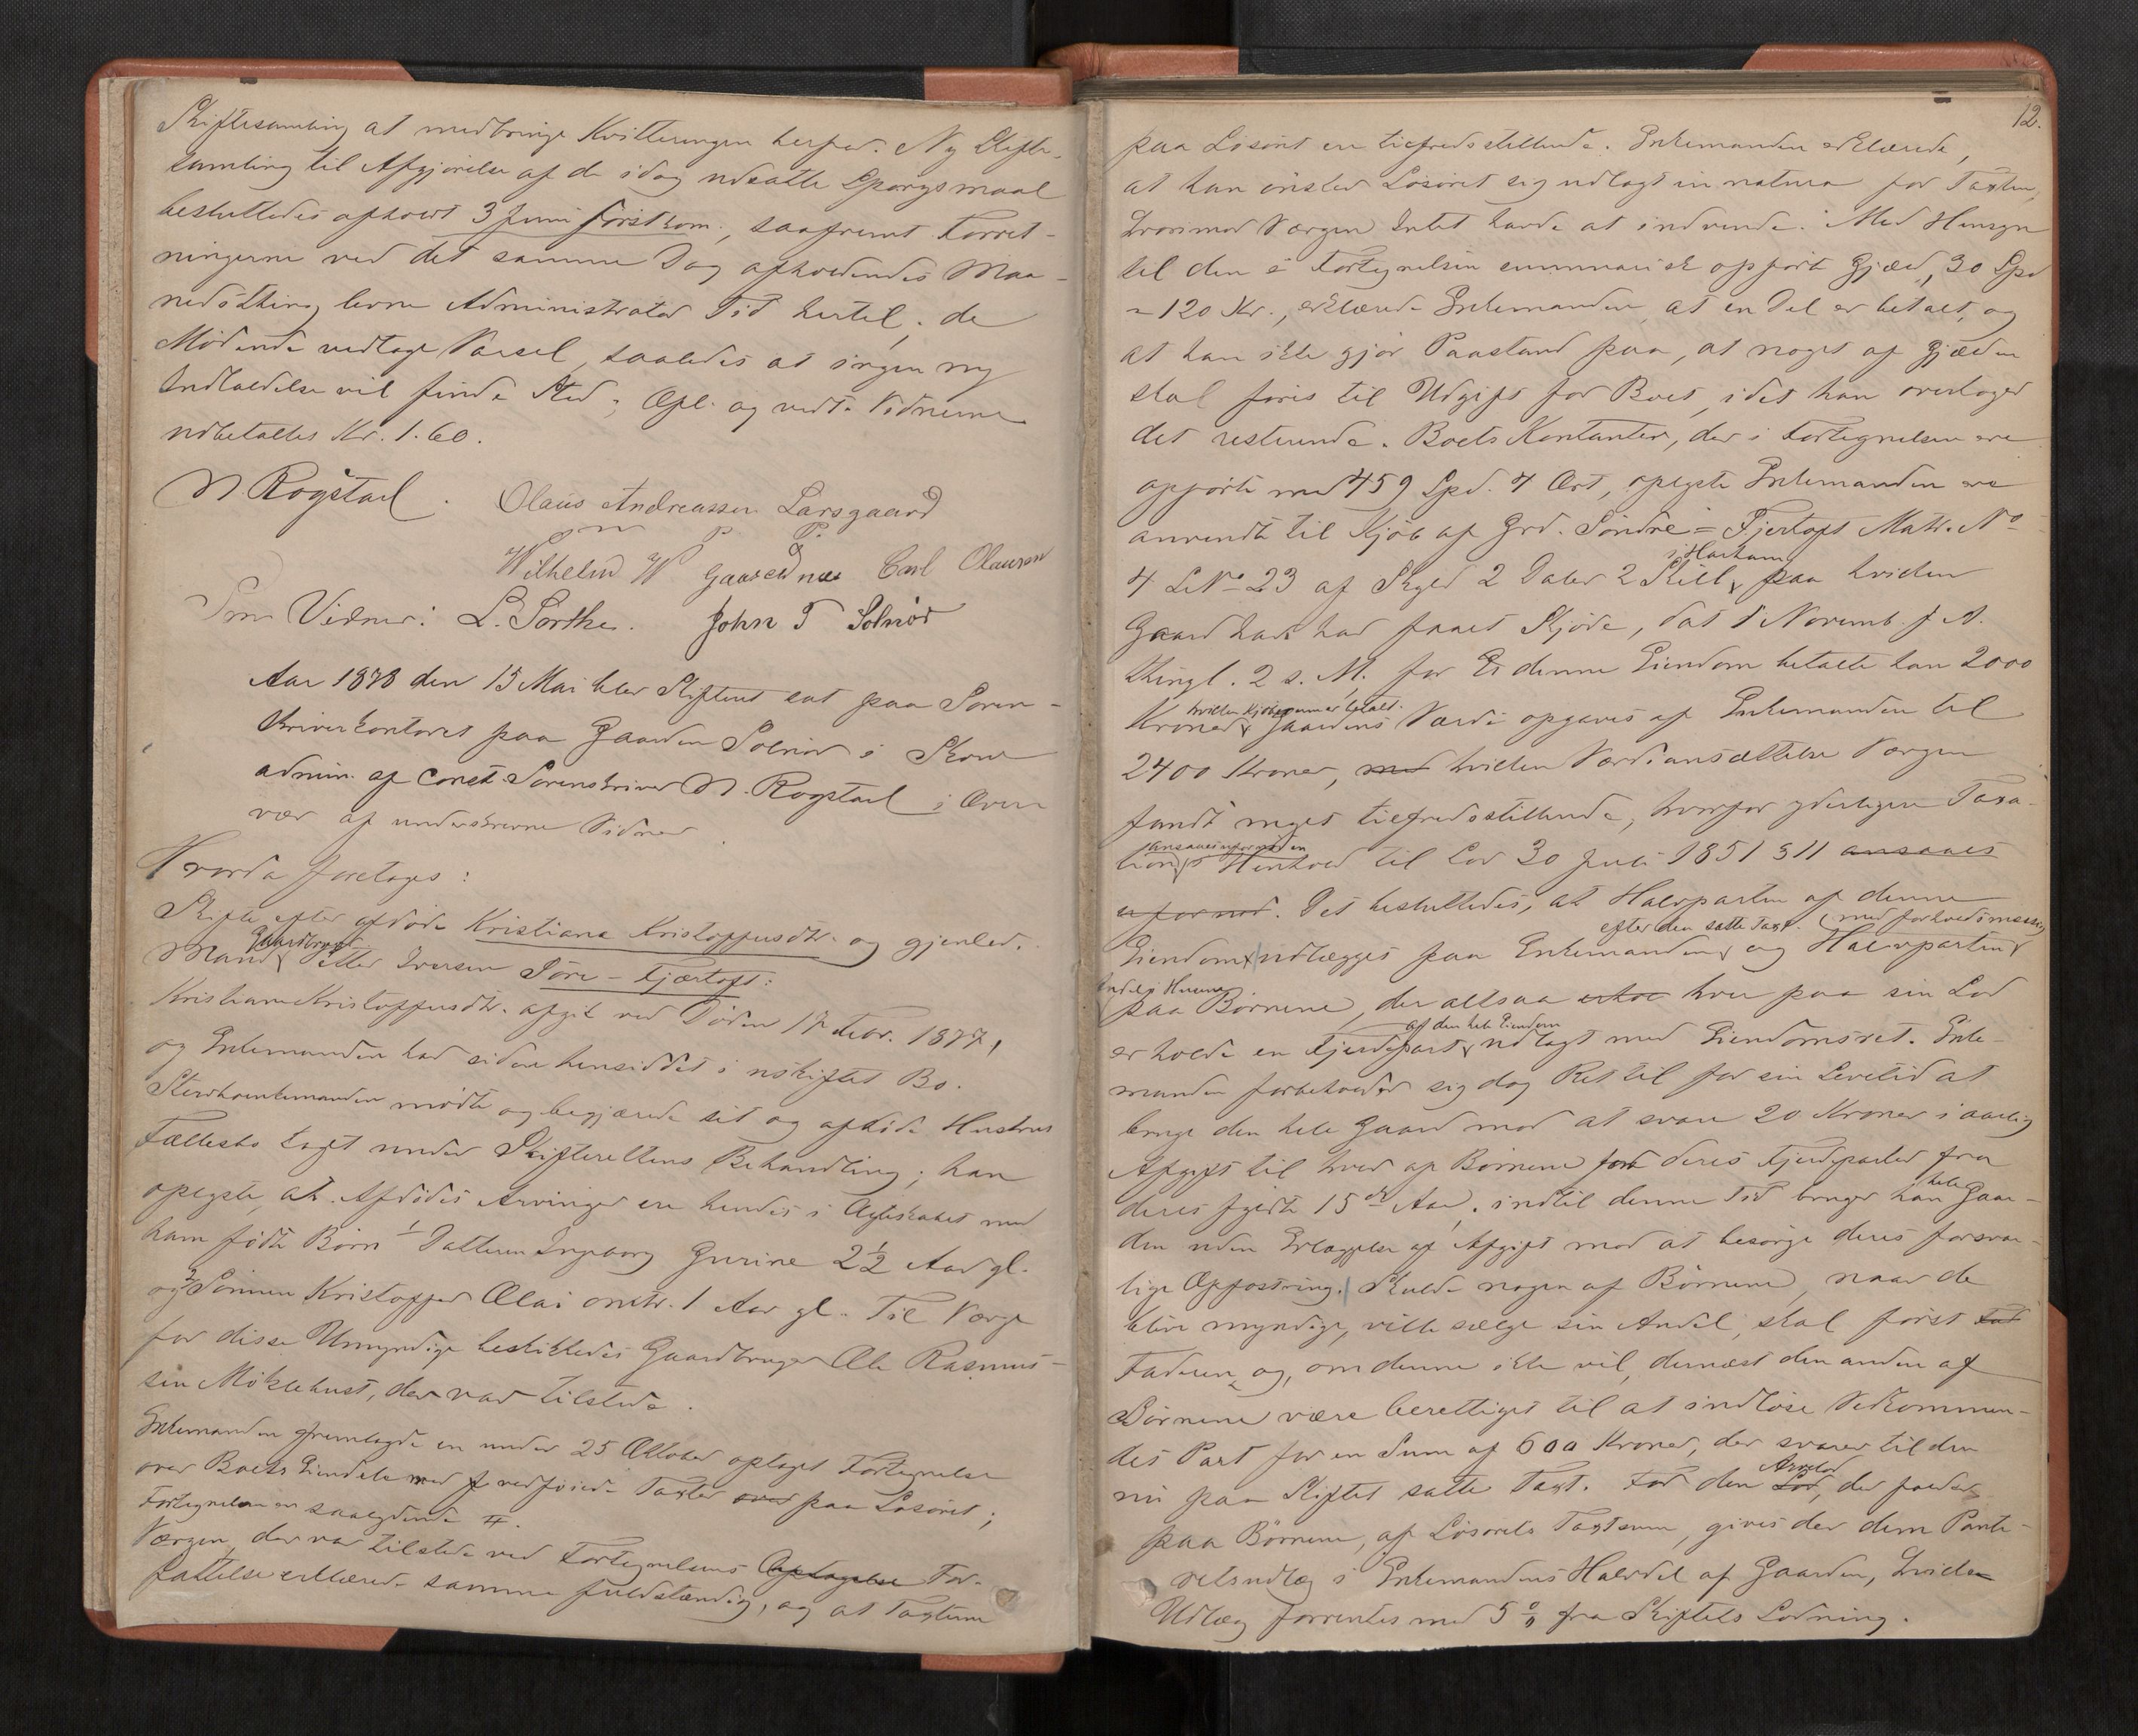 Skiftesamling at medbringe Kvitteringen herfor. Ny Skifte-
samling til Afgjørelse af de idag udsatte Spørgsmaal
besluttedes afholdt 3 Juni førstkom., saafremt Forret-
ningerne ved det samme Dag afholdendes Maa-
nedsthing levne Administrator Tid hertil; de
Mødende vedtoge Varsel, saaledes at ingen ny
Indkaldelse vil finde Sted; Opl. og vedt. Vidnerne
udbetaltes Kr. 1.60.
N. Rogstad. Olaus Andreassen Larsgaard
m p P.
Wilhelm W Gaaseidnæs Carl Olausen
Som Vidner: L. Sorthe. John T Solnør
Aar 1878 den 15 Mai blev Skifteret sat paa Soren-
skriverkontoret paa Gaarden Solnør i Skoue
admin. af const. Sorenskriver N. Rogstad i Over-
vær af underskrevne Vidner
Hvorda foretoges:
Skifte efter afdøde Kristiane Kristoffersdtr. og gjenlev.
Mand Gaardbruger Petter Iversen Søre-Fjærtoft:
Kristiane Kristoffersdtr. afgik ved Døden 17 Febr. 1877,
og Enkemanden har siden hensiddet i uskiftet Bo.
Stervboenkemanden mødte og begjærede sit og afdøde Hustrus
Fællesbo taget under Skifterettens Behandling; han
oplyste, at Afdødes Arvinger ere hendes i Ægteskabet med
ham fødte Børn 1/ Datteren Ingeborg Gurine 2½ Aar gl.
og 2/ Sønnen Kristoffer Olai omtr. 1 Aar gl. Til Værge
for disse Umyndige beskikkedes Gaardbruger Ole Rasmus-
sen Møklebust, der var tilstede.
Enkemanden fremlagde en under 25 Oktober optaget Fortegnelse
over Boets Eiendele med vedføiede Taxter over paa Løsøret;
Fortegnelsen er saalydende #.
Værgen, der var tilstede ved Fortegnelsens Optagelse For-
fattelse erklærede samme fuldstændig, og at Taxterne
12.
paa Løsøret ere tilfredsstillende. Enkemanden erklærede,
at han ønsker Løsøret sig udlagt in natura for Taxten,
hvorimod Værgen Intet havde at indvende. Med Hensyn
til den i Fortegnelsen summarisk opførte Gjæld, 30 Spd
= 120 Kr., erklærede Enkemanden, at en Del er betalt, og
at han ikke gjør Paastand paa, at noget af Gjælden
skal føres til Udgift for Boet, idet han overtager
det resterende. Boets Kontanter, der i Fortegnelsen ere
opførte med 459 Spd. 4 Ort, oplyste Enkemanden ere
anvendte til Kjøb af Grd. Søndre=Fjertoft Matr. No
4 LNo 23 af Skyld 2 Daler 2 Skill. i Harham paa hvilken
Gaard han har faaet Skjøde, dat 1 Novemb. f. A.
thingl. 2 s. M. for Ei denne Eiendom betalte han 2000
Kroner hvilken Kjøbesum er betalt. Gaardens Værdi opgaves af Enkemanden til
2400 Kroner, med hvilken Værdiansættelse Værgen
fandt meget tilfredsstillende, hvorfor yderligere Taxa-
tion ansaaes ufornøden i Henhold til Lov 30 Juli 1851 § 11 ansaaes
ufornød. Det besluttedes, at Halvparten af denne
Eiendom udlægges paa Enkemanden efter den satte Taxt. og Halvparten med forholdsmæssig
Andel i Husene paa Børnene, der altsaa erhol hver paa sin Lod
erholde en Fjerdepart af den hele Eiendom udlagt med Eiendomsret. Enke-
manden forbeholder sig dog Ret til for sin Levetid at
bruge den hele Gaard mod at svare 20 Kroner i aarlig
Afgift til hver af Børnene for deres Fjerdeparter fra
deres fyldte 15de Aar; indtil denne Tid bruger han hele Gaar-
den uden Erlæggelse af Afgift mod at besørge deres forsvar-
lige Opfostring. Skulde nogen af Børnene, naar de
blive myndige, ville sælge sin Andel, skal først Fad
Faderen, og, om denne ikke vil, dernæst den anden af
Børnene være berettiget til at indløse Vedkommen-
des Part for en Sum af 600 Kroner, der svarer til den
nu paa Skiftet satte Taxt. For den Lod Arvelod, der falder
paa Børnene, af Løsørets Taxtsum, gives der dem Pante-
retsudlæg i Enkemandens Halvdel af Gaarden, hvilken
Udlæg forrentes med 5 % fra Skiftets Lodning.